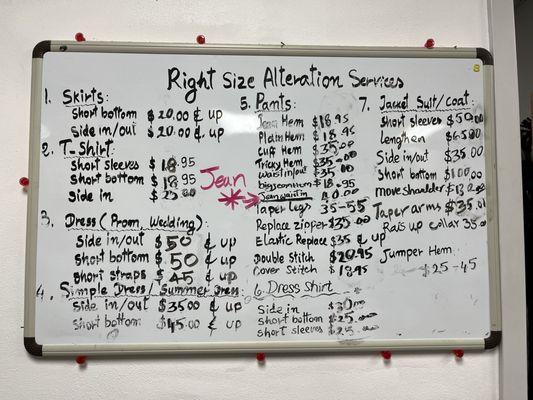 Right Size Alteration Services
1. Skirts:
Short bottom $20.00 & up
Side in/out $20.00 & up
2. T-Shirt:
Short sleeves $18.95
Short bottom $18.95
Side in $25.00
3. Dress (Prom, Wedding):
Side in/out $50 & up
Short bottom $50 & up
Short straps $45 & up
4. Simple Dress/Summer Dress:
Side in/out $35.00 & up
Short bottom $45.00 & up
Jean
5. Pants:
Hem $18.95
Plain Hem $18.95
Cuff Hem $35.00
Tricky Hem $35.00
Waist in/out $35.00
$18.95
Jean waist in
Taper legs 35-55
Replace zipper $35.00
Elastic Replace $35 & up
Double Stitch $20.95
Cover Stitch $18.95
6. Dress Shirt
Side in $30.00
Short bottom $25.00
Short sleeves $25.00
7. Jacket Suit/coat:
Short sleeves $50.00
Lengthen $65.00
Side in/out $35.00
Short bottom $100.00
move shoulder $130.00
Taper arms $35.00
Rais up collar 35.00
Jumper Hem:
$25-45
8